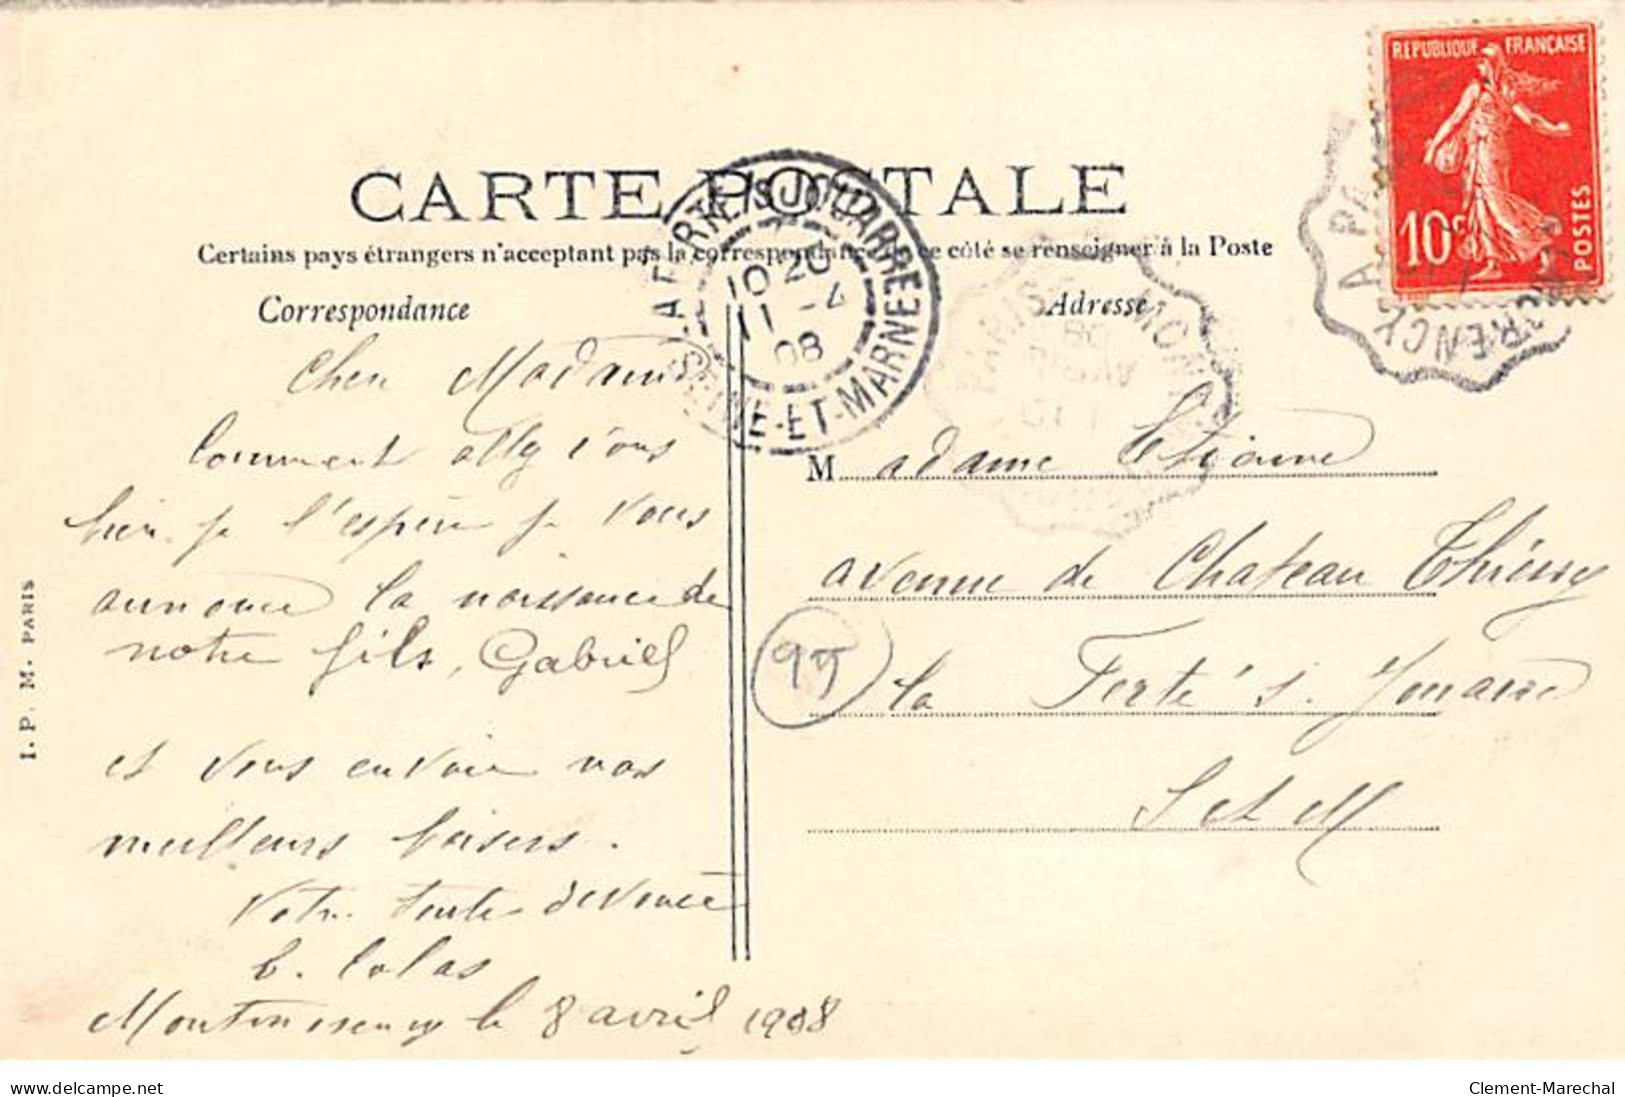 REPUBLIQUE FRANÇAISE
10c POSTES
CARTE POSTALE
Certains pays étrangers n'acceptant pas la correspondance de ce côté se renseigner à la Poste
Correspondance
Adresse
LA FERTE-S-JOUARRE
10 20
11 -4
08
SEINE-ET-MARNE
PARIS
AVRIL
08
Cher Madame
Comment allez vous
bien je l'espère je vous
annonce la naissance de
notre fils, Gabriel
et vous envoie nos
meilleurs baisers.
Votre toute dévouée
Colas
Montmorency le 8 avril 1908
Madame Etienne
avenue de Chateau Thierry
la Ferté s. Jouarre
S et M
95
I. P. M. PARIS
www.delcampe.net
Clement-Marechal